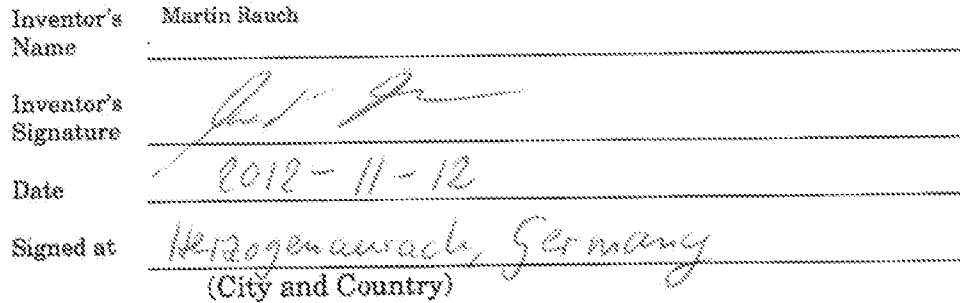 Inventor's Name Martin Rauch
Inventor's Signature
Date 2012-11-12
Signed at Herzogenaurach, Germany
(City and Country)